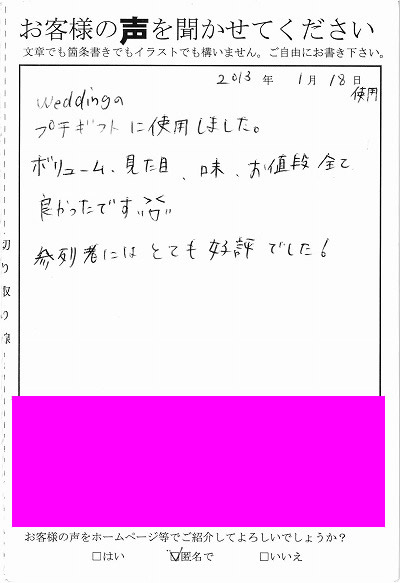 お客様の声を聞かせてください
文章でも箇条書きでもイラストでも構いません。ご自由にお書き下さい。
2013 年 1 月 18 日
使用
weddingの
プチギフトに使用しました。
ボリューム、見た目、味、お値段全て
良かったです
参列者にはとても好評でした!
切り取り線
お客様の声をホームページ等でご紹介してよろしいでしょうか?
□はい ☑匿名で □いいえ